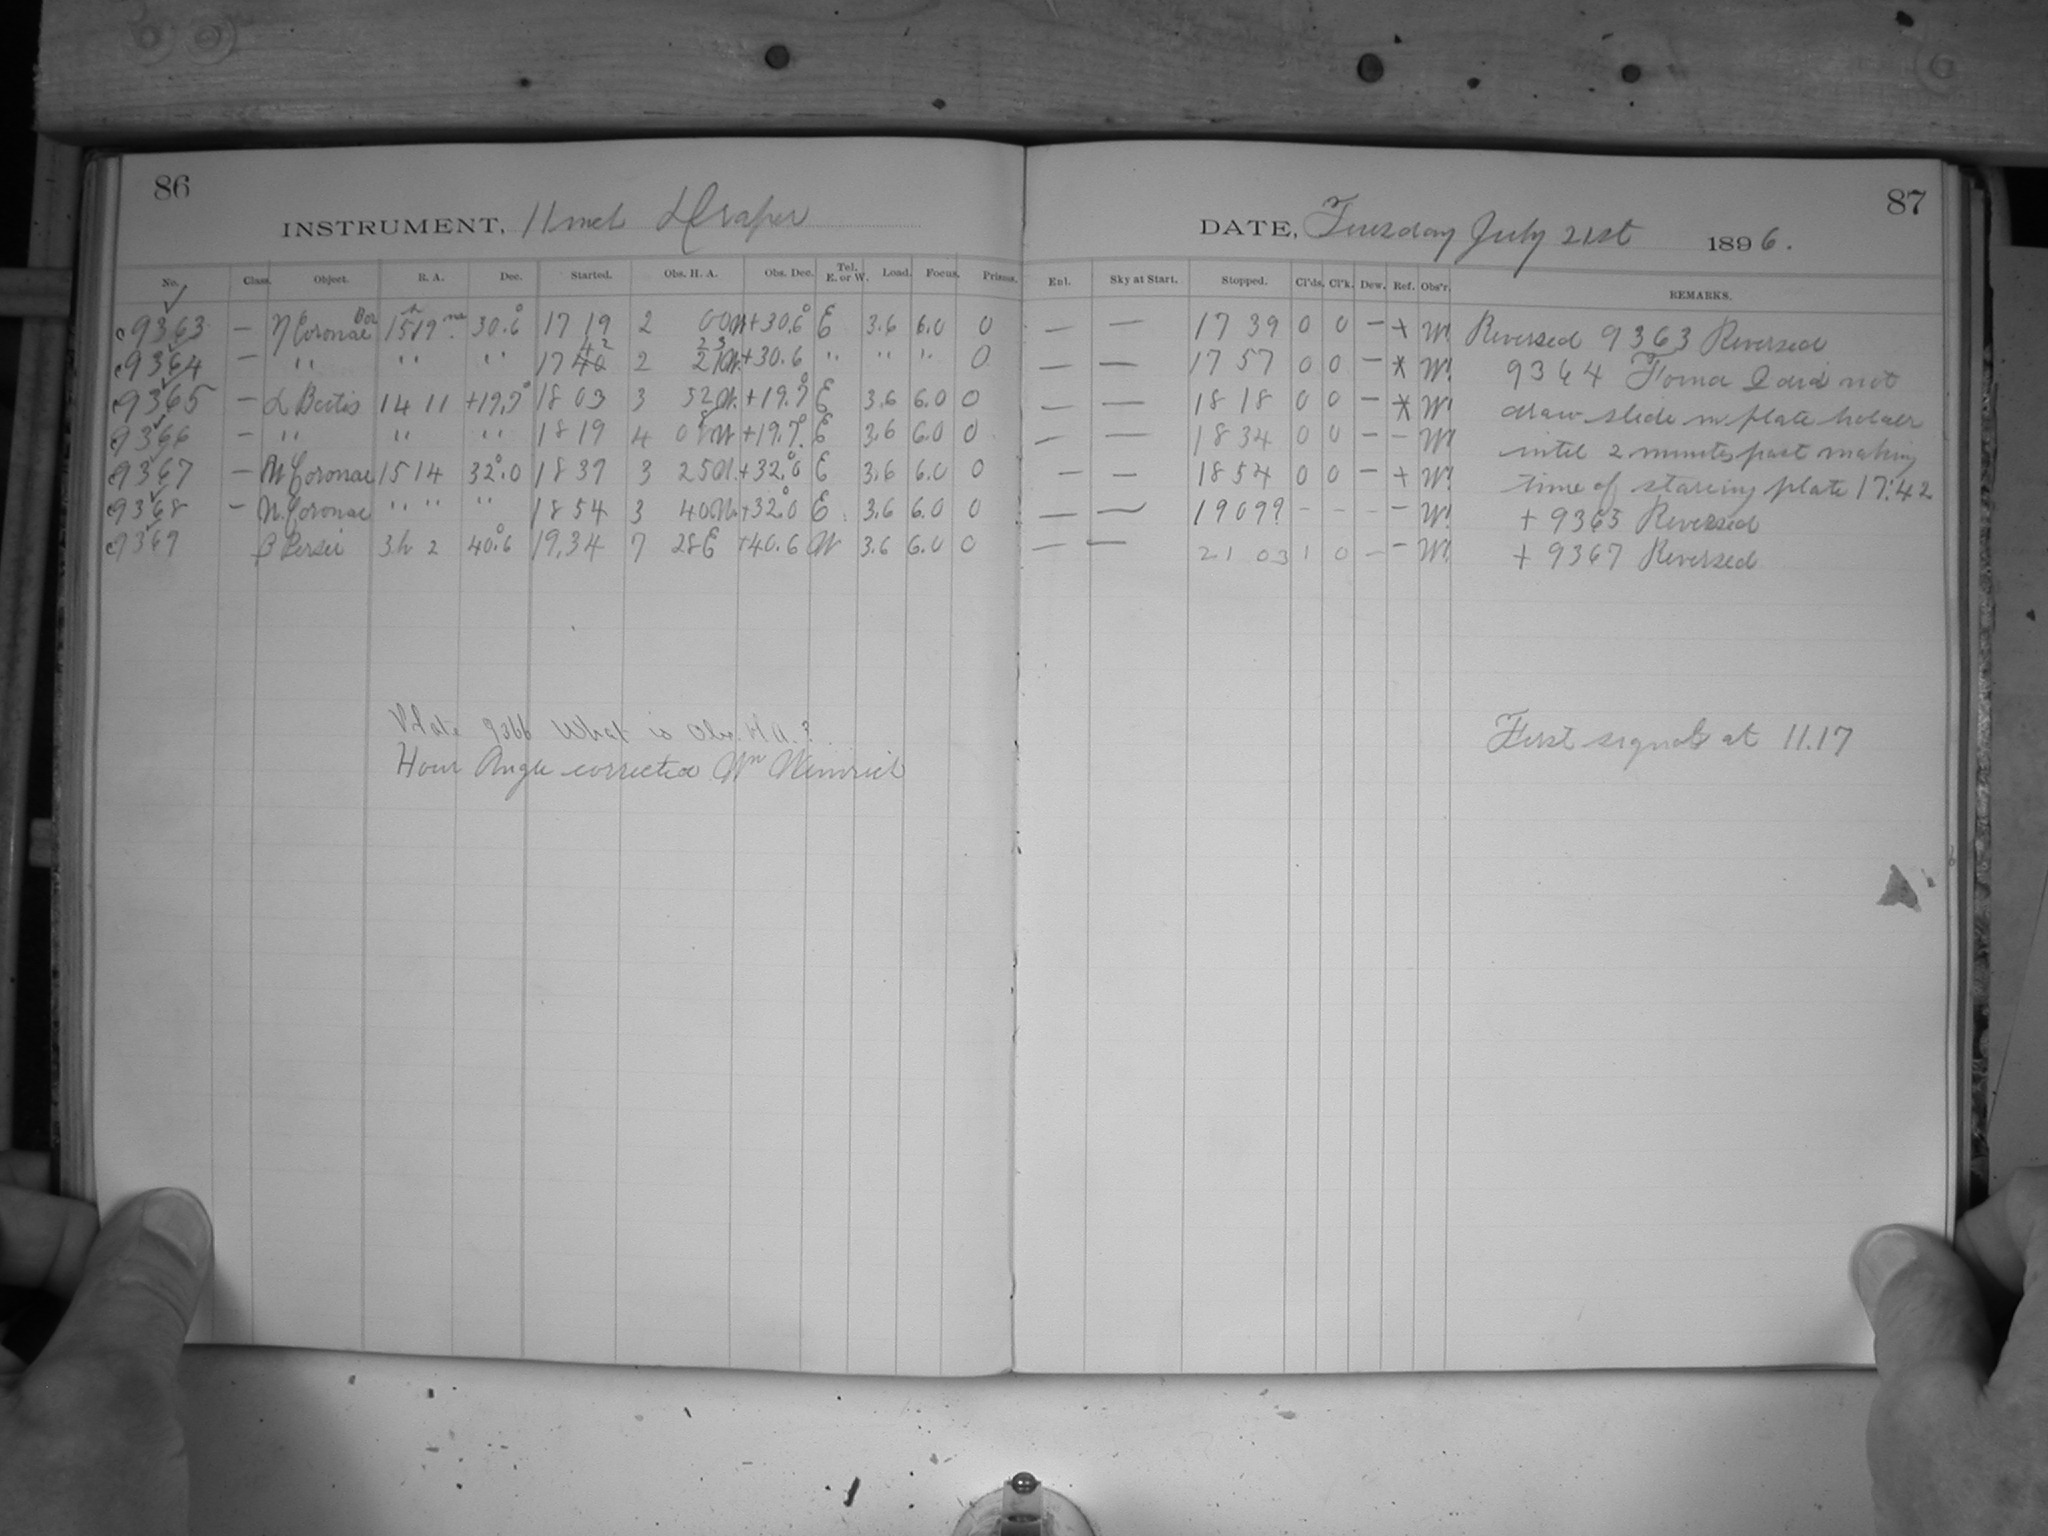 86
INSTRUMENT, 11 inch Draper
No. Class. Object. R. A. Dec. Started. Obs. H. A. Obs. Dec. Tel. E. or W. Load. Focus. Prisms.
c9363 — η Coronae Bor 15h 19m. 30.°6 17 19 2 00W +30.°6 E 3.6 6.0 0
c9364 — " " " 17 42 2 23W. +30.6 " " " 0
c9365 — α Bootis 14 11 +19.°7 18 03 3 52W. +19.°7 E 3.6 6.0 0
c9366 — " " " 18 19 4 08W +19.°7 E 3.6 6.0 0
c9367 — Coronae 15 14 32.°0 18 37 3 25W. +32.°0 E 3.6 6.0 0
c9368 — Coronae " " " 18 54 3 40W. +32.°0 E 3.6 6.0 0
c9369 β Persei 3h 2 40.°6 19,34 7 28E +40.6 W 3.6 6.0 0
Plate 9366 What is Obs. H.A.?
Hour Angle corrected Wm
87
DATE, Tuesday July 21st 1896.
Enl. Sky at Start. Stopped. Cl'ds. Cl'k. Dew. Ref. Obs'r. REMARKS.
— — 17 39 0 0 — + W. Reversed 9363 Reversed
— — 17 57 0 0 — * W. 9364 Found I did not
— — 18 18 0 0 — * W. draw slide in plate holder
— — 18 34 0 0 — — W. until 2 minutes past making
— — 18 54 0 0 — + W. time of starting plate 17.42
— — 19 09? – – – – W. + 9365 Reversed
— — 21 03 1 0 – – W. + 9367 Reversed
First signals at 11.17